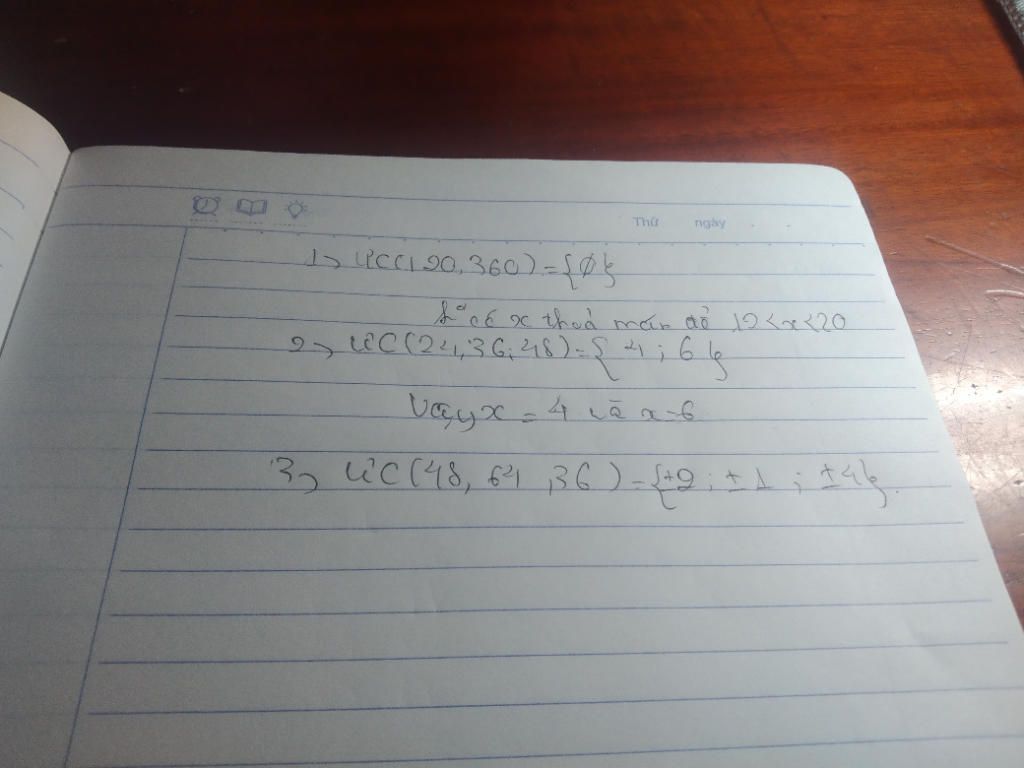 Thứ ngày
1> ƯC(120,360)={ø}
có x thoả mãn đk 12<x<20
2> ƯC(24,36,48)={ 4 ; 6 }
Vậy x = 4 và x=6
3> ƯC(48, 64 ,36 )={±2 ; ±1 ; ±4}.